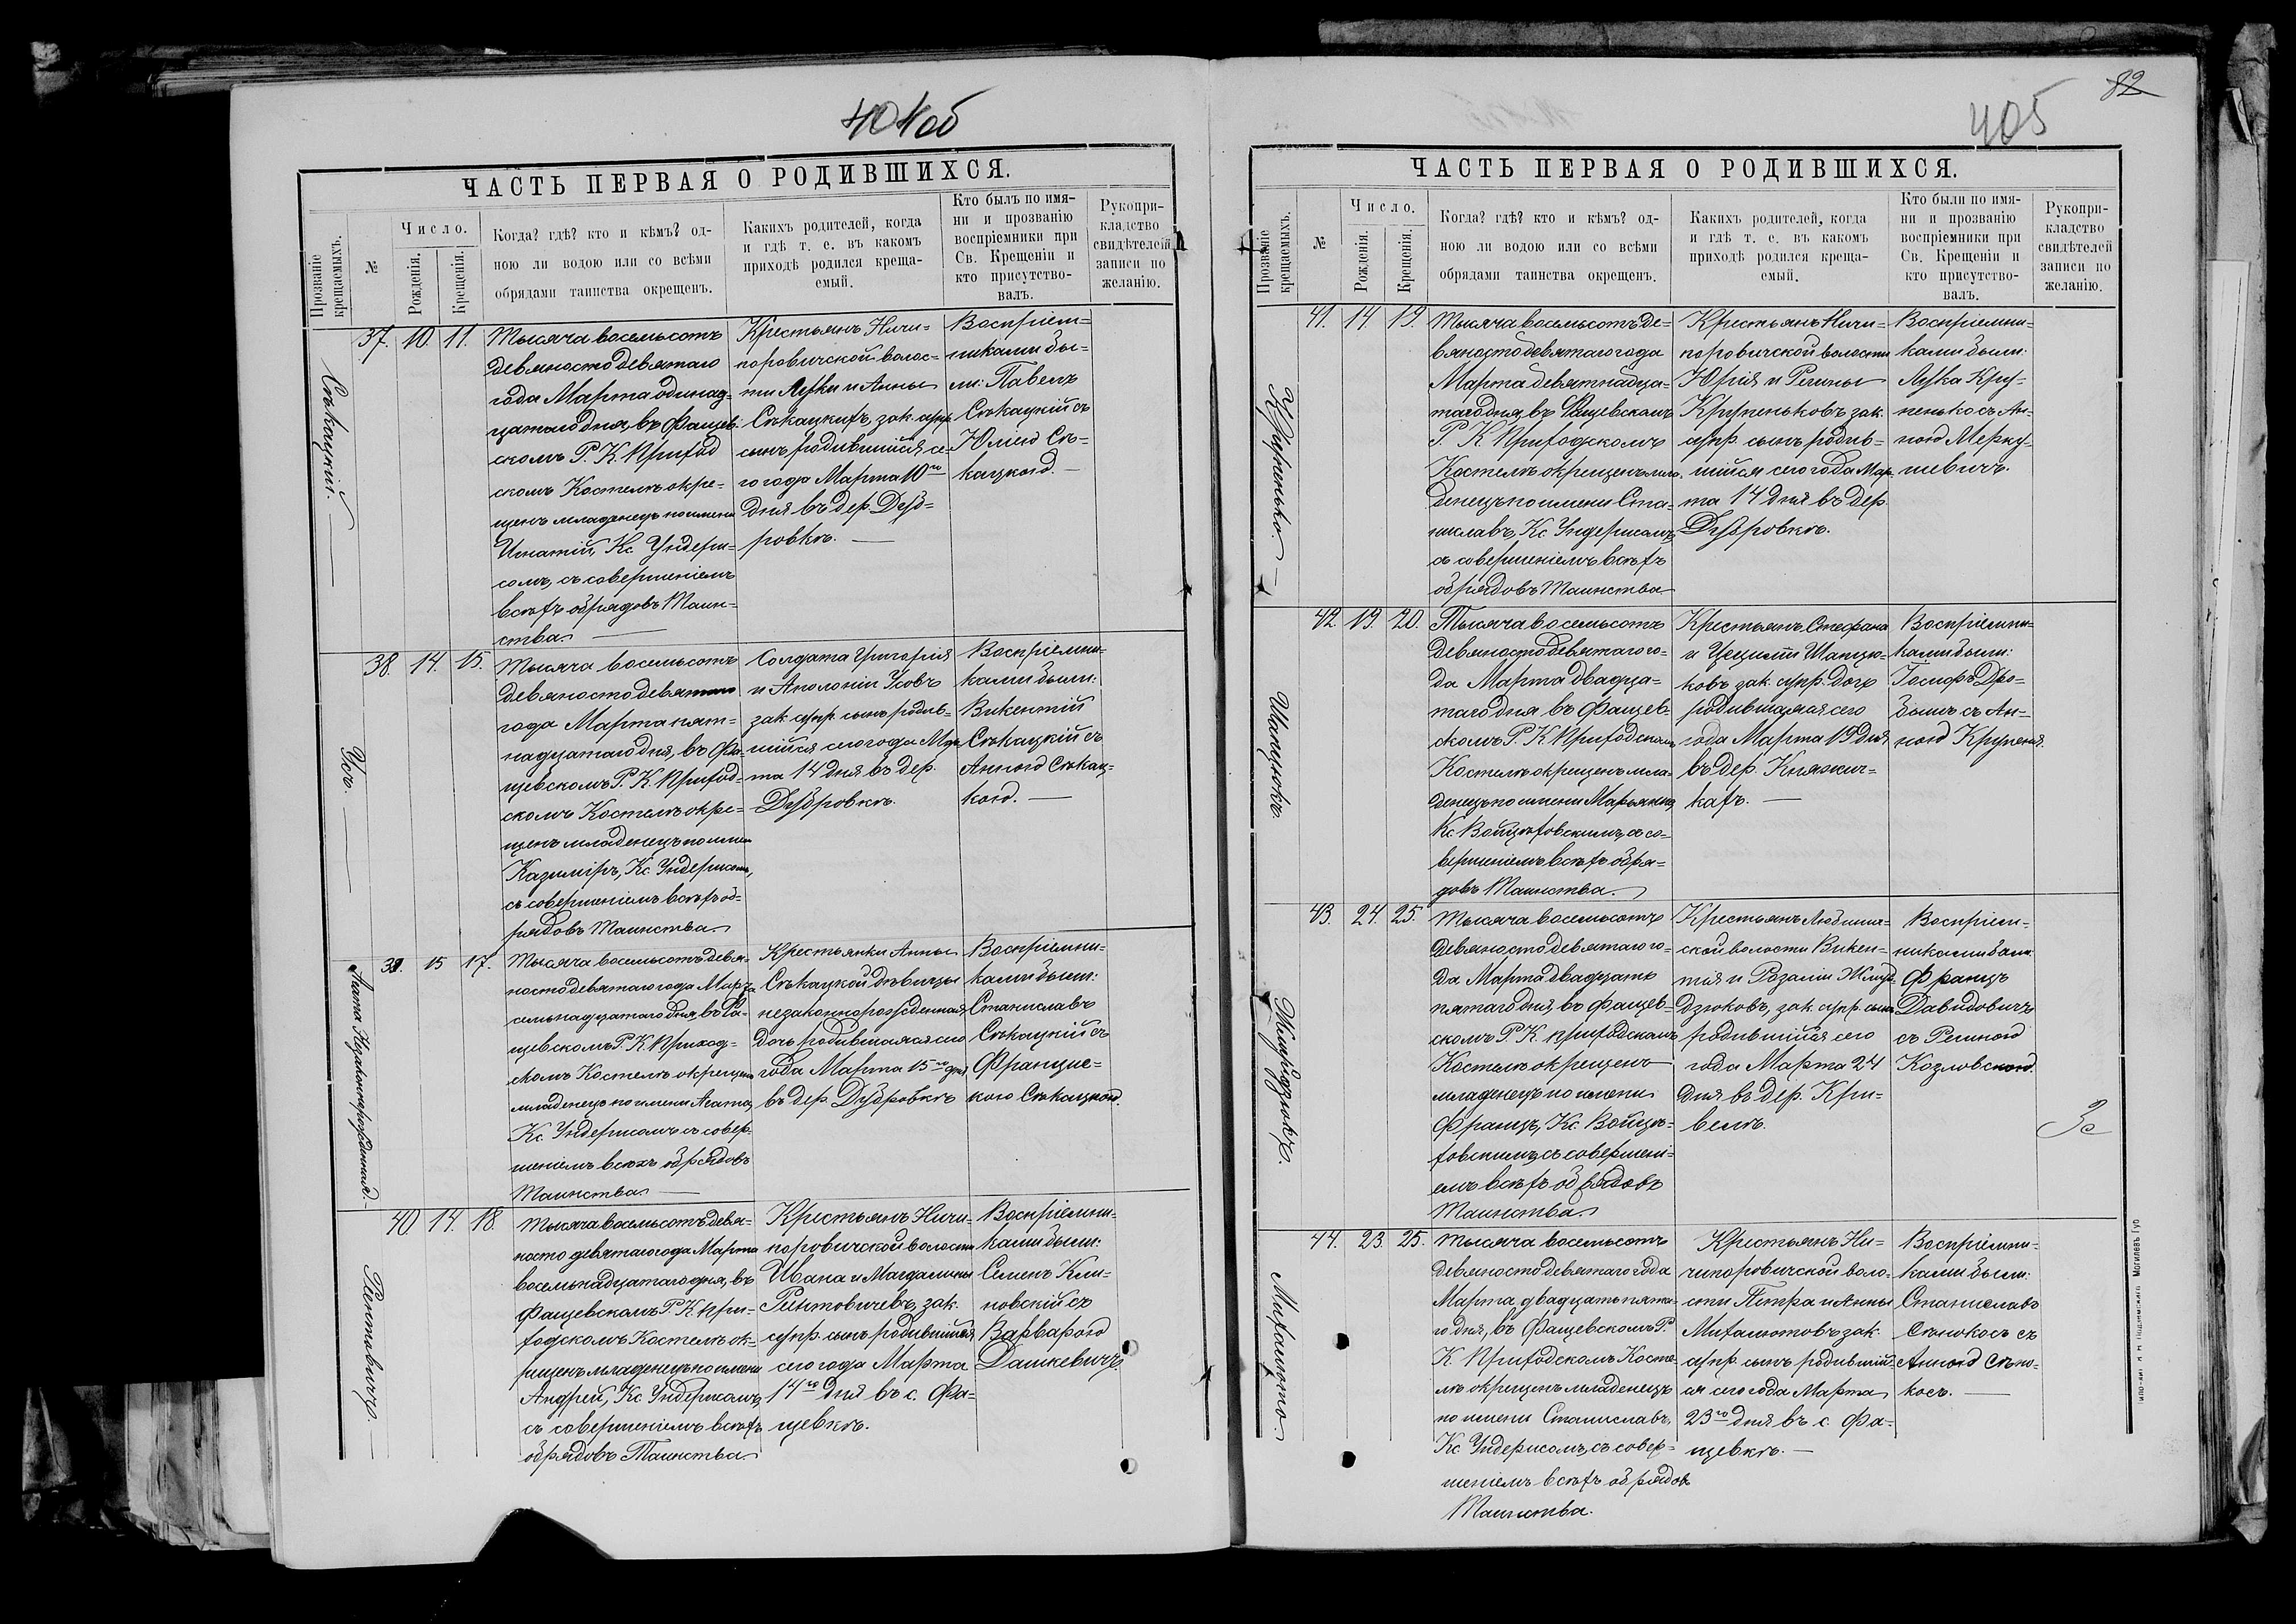 404об
ЧАСТЬ ПЕРВАЯ О РОДИВШИХСЯ.
Прозваніе крещаемыхъ.
№
Число.
Рожденія.
Крещенія.
Когда? гдѣ? кто и кѣмъ? од-
ною ли водою или со всѣми
обрядами таинства окрещенъ.
Какихъ родителей, когда
и гдѣ т. е. въ какомъ
приходѣ родился креща-
емый.
Кто былъ по имя-
ни и прозванію
воспріемники при
Св. Крещеніи и
кто присутство-
валъ.
Рукопри-
кладство
свидѣтелей
записи по
желанію.
Сѣкацкій.
37. 10. 11.
Тысяча восемьсотъ
девяносто девятаго
года Марта одинад-
цатаго дня, въ Фащев-
скомъ Р. К. Приход
скомъ Костелѣ окре-
щенъ младенецъ по имени
Игнатій, Кс. Ундери-
сомъ, съ совершеніемъ
всѣхъ обрядовъ Таин-
ства.
Крестьянъ Ничи-
поровичской волос-
ти Луки и Анны
Сѣкацкихъ, зак. супр.
сынъ родившійся се-
го года Марта 10го
дня въ дер. Дуб-
ровкѣ.
Воспріем-
никами бы-
ли: Павелъ
Сѣкацкій съ
Юліею Сѣ-
кацкою.
Усъ.
38. 14. 15.
Тысяча восемьсотъ
девяносто девятаго
года Марта пят-
надцатаго дня, въ Фа-
щевскомъ Р. К. Приход-
скомъ Костелѣ окре-
щенъ младенецъ по имени
Казимиръ, Кс. Ундерисомъ,
съ совершеніемъ всѣхъ об-
рядовъ Таинства.
Солдата Григорія
и Аполоніи Усовъ
зак. супр. сынъ родив-
шійся сего года Мар-
та 14 дня въ дер.
Дубровкѣ.
Воспріемни-
ками были:
Викентій
Сѣкацкій съ
Анною Сѣкац-
кою.
Агата Незаконнорожденная.
39. 15 17.
Тысяча восемьсотъ девя-
носто девятаго года Марта
семьнадцатаго дня, въ Фа-
щевскомъ Р. К. Приход-
скомъ Костелѣ окрещенъ
младенецъ по имени Агата,
Кс. Ундерисомъ съ совер-
шеніемъ всѣхъ обрядовъ
Таинства.
Крестьянки Анны
Сѣкацкой дѣвицы
незаконнорожденная
дочь родившаяся сего
года Марта 15го дня
въ дер. Дубровкѣ
Воспріемни-
ками были:
Станиславъ
Сѣкацкій съ
Францис-
кою Сѣкацкою.
Рентовичъ.
40. 14. 18.
Тысяча восемьсотъ девя-
носто девятаго года Марта
восемьнадцатаго дня, въ
Фащевскомъ Р. К. При-
ходскомъ Костелѣ ок-
рещенъ младенецъ по имени
Андрей, Кс. Ундерисомъ,
съ совершеніемъ всѣхъ
обрядовъ Таинства
Крестьянъ Ничи-
поровичской волости
Ивана и Магдалины
Рентовичевъ, зак.
супр. сынъ родившійся
сего года Марта
14го дня въ с. Фа-
щевкѣ.
Воспріемни-
ками были:
Семенъ Кли-
новскій съ
Варварою
Дашкевичъ.
82
405
ЧАСТЬ ПЕРВАЯ О РОДИВШИХСЯ.
Прозваніе крещаемыхъ.
№
Число.
Рожденія.
Крещенія.
Когда? гдѣ? кто и кѣмъ? од-
ною ли водою или со всѣми
обрядами таинства окрещенъ.
Какихъ родителей, когда
и гдѣ т. е. въ какомъ
приходѣ родился креща-
емый.
Кто были по имя-
ни и прозванію
воспріемники при
Св. Крещеніи и
кто присутство-
валъ.
Рукопри-
кладство
свидѣтелей
записи по
желанію.
Крупенько.
41. 14 19.
Тысяча восемьсотъ де-
вяносто девятаго года
Марта девятнадца-
таго дня, въ Фащевскомъ
Р. К. Приходскомъ
Костелѣ окрещенъ мла-
денецъ по имени Ста-
ниславъ, Кс. Ундерисомъ,
съ совершеніемъ всѣхъ
обрядовъ Таинства
Крестьянъ Ничи-
поровичской волости
Юрія и Регины
Крупеньковъ, зак.
супр. сынъ родив-
шійся сего года Мар-
та 14 дня въ дер.
Дубровкѣ.
Воспріемни-
ками были:
Лука Кру-
пенько съ Ан-
ною Мерку-
шевичъ.
Шапцюкъ.
42. 19. 20.
Тысяча восемьсотъ
девяносто девятаго го-
да Марта двадца-
таго дня въ Фащев-
скомъ Р. К. Приходскомъ
Костелѣ окрещенъ мла-
денецъ по имени Марьянна,
Кс. Войцѣховскимъ, съ со-
вершеніемъ всѣхъ обря-
довъ Таинства.
Крестьянъ Стефана
и Цециліи Шапцю-
ковъ зак. супр. дочь
родившаяся сего
года Марта 19 дня
въ дер. Княжиц-
кахъ.
Воспріемни-
ками были:
Іосифъ Дро-
бышъ съ Ан-
ною Крупеня.
43. 24. 25.
Тысяча восемьсотъ
девяносто девятаго го-
да Марта двадцать
пятаго дня, въ Фащев-
скомъ Р. К. приходскомъ
Костелѣ окрещенъ
младенецъ по имени
Францъ, Кс. Войцѣ-
ховскимъ, съ совершені-
емъ всѣхъ обрядовъ
Таинства.
скои волости Викен-
тія и Розаліи
дзюковъ, зак. супр. сынъ
родившійся сего
года Марта 24
дня въ дер. Кри-
велѣ.
Воспріем-
никами были:
Францъ
Давидовичъ
съ Региною
Козловскою.
Михалюто.
44. 23. 25.
Тысяча восемьсотъ
девяносто девятаго года
Марта двадцать пята-
го дня, въ Фащевскомъ Р.
К. Приходскомъ Косте-
лѣ окрещенъ младенецъ
по имени Станиславъ,
Кс. Ундерисомъ, съ совер-
шеніемъ всѣхъ обрядовъ
Таинства.
Крестьянъ Ни-
чипоровичской воло-
сти Петра и Анны
Михалютовъ зак.
супр. сынъ родившій-
ся сего года Марта
23го дня въ с. Фа-
щевкѣ.
Воспріемни-
ками были:
Станиславъ
Сѣнокосъ съ
Анною Сѣно-
косъ.